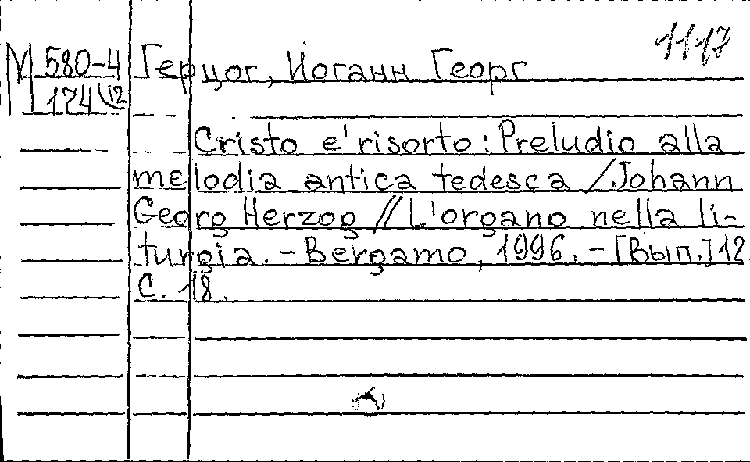 1117
М 580-4 Герцог, Иоганн Георг
174\12
Cristo e'risorto: Preludio alla
melodia antica tedesca / Johann
Georg Herzog // L'organo nella li-
turgia. - Bergamo, 1996. - [Вып.] 12
С. 18.